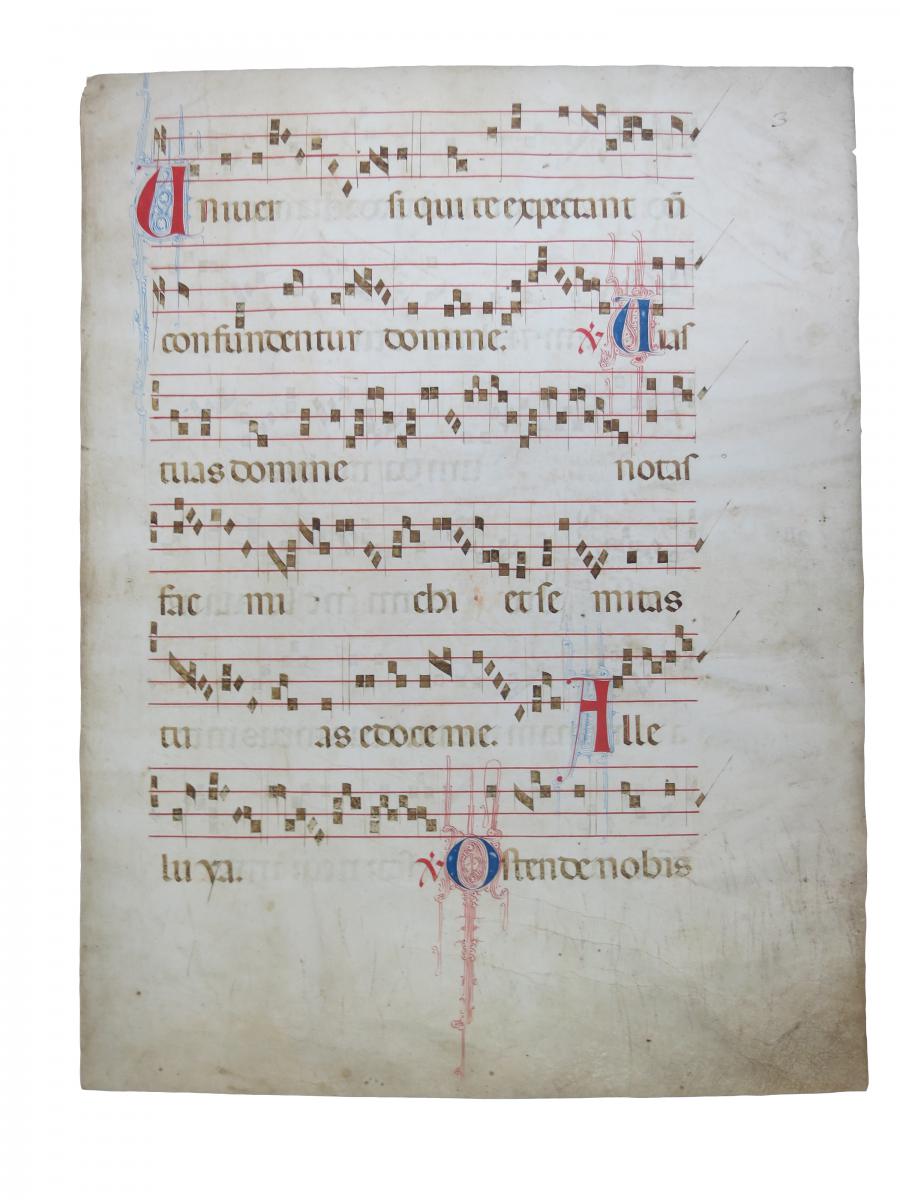 3
Uniuer si qui te expectant nō
confundentur domine. ℣. Uias
tuas domine notas
fac mi chi et se mitas
tu as edoce me. Alle
lu ya. ℣. Ostende nobis